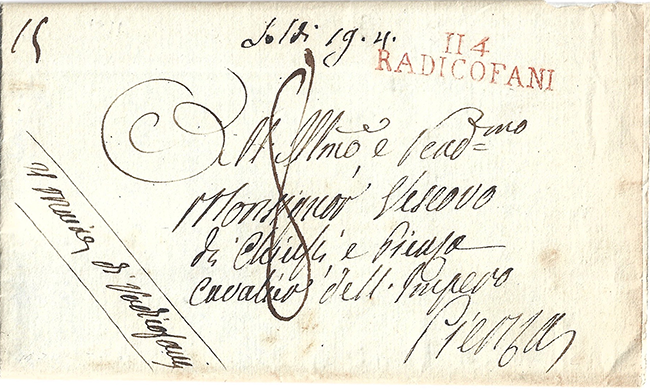 15
Soldi 19.4.
114
RADICOFANI
8
All' Illmo e Revd=mo
Monsignor Vescovo
di Chiusi e Pienza
Cavalier dell' Impero
Pienza
Il Maire di Radicofani